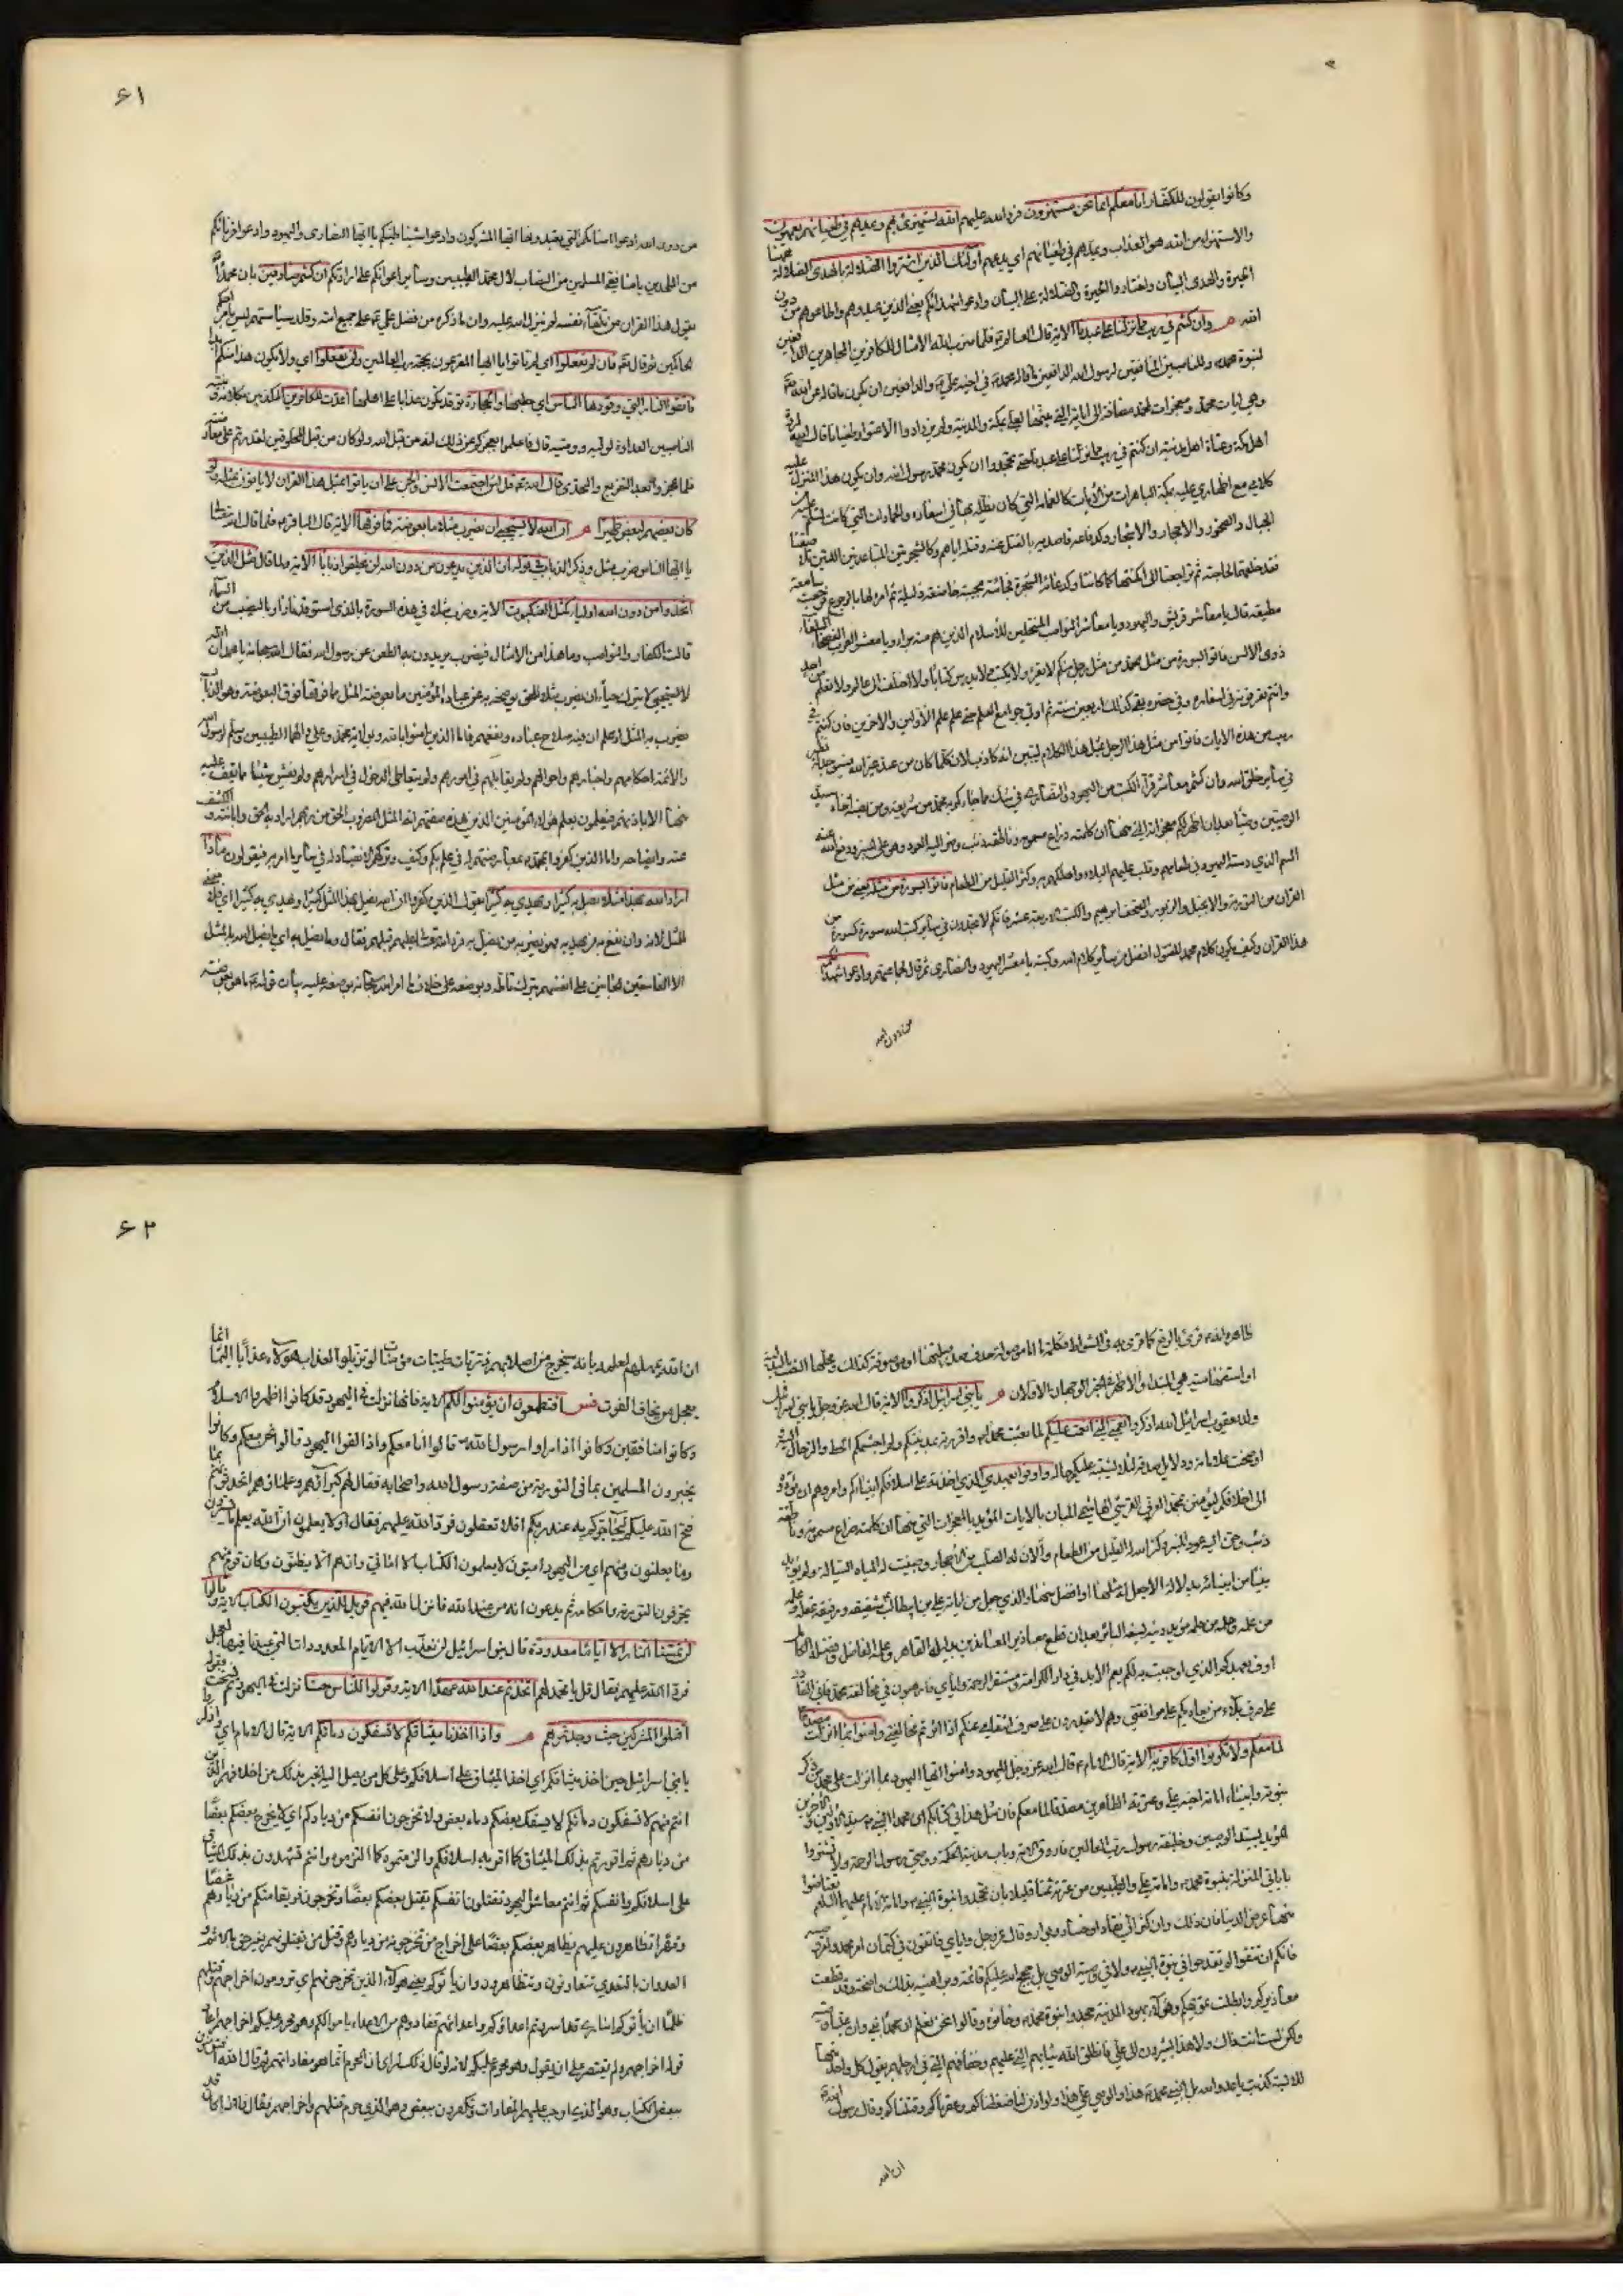 وكانوا يقولون للكفار انا معكم انما نحن مستهزؤن فرد الله عليهم الله يستهزئ بهم ويمدهم في طغيانهم يعمهون
والاستهزاء من الله هو العذاب ويمدهم في طغيانهم اي يدعهم اولئك الذين اشتروا الضلالة بالهدى الضلالة
الحيرة والهدى البيان واختاروا الحيرة والضلالة على البيان وادعوا شهدائكم يعني الذين عبدوهم واطاعوهم من دون
الله م وان كنتم في ريب مما نزلنا على عبدنا الاية قال العالم فلما ضرب الله الامثال للكافرين المجاهرين الدافعين
لنبوة محمد وللناصبين المنافقين لرسول الله الدافعين ما قاله محمد في اخيه علي والدافعين ان يكون ما قاله عن الله
وهي ايات محمد ومعجزات لمحمد مضافة الى اياته التي بينها لعلي بمكة والمدينة ولم يزدادوا الا عتوا وطغيانا قال الله لمردة
اهل مكة وعتاة اهل المدينة ان كنتم في ريب مما نزلنا على عبدنا حتى تجحدوا ان يكون محمد رسول الله وان يكون هذا المنزل عليه
كلامي مع اظهاري عليه بمكة الباهرات من الايات كالغمامة التي كان يظله بها في اسفاره والجمادات التي كانت تسلم عليه من
الجبال والصخور والاحجار والاشجار وكدفاعه قاصديه بالقتل عنه وقتله اياهم وكالشجرتين المتباعدتين اللتين تلاصقتا
فقعد خلفهما لحاجته ثم تراجعتا الى امكنتهما كما كانتا وكدعائه الشجرة فجائته مجيبة خاضعة ذليلة ثم امره لها بالرجوع فرجعت سامعة
مطيعة قال يا معاشر قريش واليهود ويا معاشر النواصب المنتحلين للاسلام الذين هم منه براء ويا معشر العرب الفصحاء البلغاء
ذوى الالسن فاتوا بسورة من مثله من مثل محمد من مثل رجل منكم لا يقرء ولا يكتب ولم يدرس كتابا ولا اختلف الى عالم ولا تعلم من احد
وانتم تعرفونه في اسفاره وفي حضره بقي كذلك اربعين سنة ثم اوتي جوامع العلم حتى علم علم الاولين والاخرين فان كنتم في
ريب من هذه الايات فاتوا من مثل هذا الرجل بمثل هذا الكلام ليتبين انه كاذب لان كلما كان من عند غير الله فسيوجد له نظير
في ساير خلق الله وان كنتم معاشر قراء الكتب من اليهود والنصارى في شك مما جاءكم به محمد من شرايعه ومن نصبه اخاه سيد
الوصيين وصيا بعد ان اظهر لكم معجزاته التي منها ان كلمته ذراع مسمومة وناطقه ذئب وحن اليه العود وهو على المنبر ودفع الله عنه
السم الذي دسته اليهود في طعامهم وقلب عليهم البلاء واهلكهم به وكثر القليل من الطعام فاتوا بسورة من مثله يعني من مثل
القران من التورية والانجيل والزبور وصحف ابرهيم والكتب الاربعة عشر فانكم لا تجدون في سائر كتب الله سورة كسورة من
هذا القران وكيف يكون كلام محمد المتقول افضل من سائر كلام الله وكتبه يا معشر اليهود والنصارى ثم قال لجماعتهم وادعوا شهدائكم
من دون الله
٦١
من دون الله ادعوا اصنامكم التي تعبدونها ايها المشركون وادعوا شياطينكم يا ايها النصارى واليهود وادعوا قرنائكم
من الملحدين يا منافقي المسلمين من النصاب لال محمد الطيبين وسائر اعوانكم على ارادتكم ان كنتم صادقين بان محمدا
يقول هذا القران من تلقاء نفسه لم ينزله الله عليه وان ما ذكره من فضل علي على جميع امته وقلده سياستهم ليس بامر احكم
الحاكمين ثم قال تع فان لم تفعلوا اي لم تاتوا يا ايها المقرعون بحجة رب العالمين ولن تفعلوا اي ولا يكون هذا منكم
فاتقوا النار التي وقودها الناس اي حطبها والحجارة توقد تكون عذابا على اهلها اعدت للكافرين المكذبين بكلامه
الناصبين العداوة لوليه ووصيه قال فاعلموا بعجزكم عن ذلك انه من قبل الله ولو كان من قبل المخلوقين لقدرتم على معارضته
فلما عجزوا بعد التقريع والتحدي قال الله تع قل لئن اجتمعت الانس والجن على ان ياتوا بمثل هذا القران لا ياتون بمثله ولو
كان بعضهم لبعض ظهيرا م ان الله لا يستحيي ان يضرب مثلا ما بعوضة فما فوقها الاية قال الباقر فلما قال الله تع
يا ايها الناس ضرب مثل وذكر الذباب في قوله ان الذين يدعون من دون الله لن يخلقوا ذبابا الاية ولما قال مثل الذين
اتخذوا من دون الله اولياء كمثل العنكبوت الاية وضرب مثلا في هذه السورة بالذي استوقد نارا وبالصيب من السماء
قالت الكفار والنواصب وما هذا من الامثال فيضرب يريدون به الطعن على رسول الله فقال الله يا محمد ان الله
لا يستحيي لا يترك حياء ان يضرب مثلا للحق يوضحه به عند عباده المؤمنين ما بعوضة المثل فما فوقها فوق البعوضة وهو الذباب
يضرب به المثل اذ علم ان فيه صلاح عباده ونفعهم فاما الذين امنوا بالله وبولاية محمد وعلي والهما الطيبين وسلم لرسول الله
والائمة احكامهم واخبارهم واحوالهم ولم يقابلهم في امورهم ولم يتعاط الدخول في اسرارهم ولم يفش شيئا مما يقف عليه
منها الا باذنهم فيعلمون يعلم هؤلاء المؤمنين الذين هذه صفتهم انه المثل المضروب الحق من ربهم اراد به الحق وابانته والكشف
عنه وايضاحه واما الذين كفروا بمحمد بمعارضتهم له في علي بلم وكيف وتركهم الانقياد له في ساير ما امر به فيقولون ماذا
اراد الله بهذا مثلا يضل به كثيرا ويهدي به كثيرا يقول الذين كفروا ان الله يضل بهذا المثل كثيرا ويهدي به كثيرا اي فلا معنى
للمثل لانه وان نفع به من يهديه فهو يضر به من يضل به فرد الله تع عليهم قيلهم فقال وما يضل به اي ما يضل الله بالمثل
الا الفاسقين الجانين على انفسهم بترك تامله وبوضعه على خلاف ما امر الله سبحانه بوضعه عليه بيان قوله تع ما هو بعوضة
ظاهره انه قرئ بالرفع كما قرئ به في الشواذ
او استفهامية هي المبتدا م يا بني اسرائيل اذكروا الاية قال الله عز وجل يا بني اسرائيل
ولد يعقوب اسرائيل الله اذكروا نعمتي التي انعمت عليكم لما بعثت محمدا واقررته بمدينتكم ولم اجشمكم الحط والترحال اليه
اوضحت علاماته ودلايل صدقه لئلا يشتبه عليكم حاله واوفوا بعهدي الذي اخذته على اسلافكم انبياءكم وامروهم ان يؤدوه
الى اخلافهم ليؤمنن بمحمد العربي القرشي الهاشمي المبان بالايات المؤيد بالمعجزات التي منها ان كلمته ذراع مسمومة وناطقه
ذئب وحن اليه عود المنبر وكثر الله له القليل من الطعام والان له الصلب من الاحجار وصلبت له المياه السيالة ولم يؤيد
نبيا من انبيائه بدلالة الا جعل له مثلها او افضل منها والذي جعل من اياته علي بن ابيطالب شقيقه ورفيقه عقله من عقله
اوف بعهدكم الذي اوجبت به لكم نعيم الابد في دار الكرامة ومستقر الرحمة واياي فارهبون في مخالفة محمد فاني القادر
على صرف بلاء من يعاديكم على موافقتي وهم لا يقدرون على صرف انتقامي عنكم اذا اثرتم مخالفتي وامنوا بما انزلت مصدقا
لما معكم ولا تكونوا اول كافر به الاية قال الامام قال الله عز وجل لليهود وامنوا ايها اليهود بما انزلت على محمد من ذكر
نبوته وانباء امامة اخيه علي وعترته الطاهرين مصدقا لما معكم فان مثل هذا في كتابكم ان محمدا النبي سيد الاولين والاخرين
المؤيد بسيد الوصيين وخليفة رسول رب العالمين فاروق الامة وباب مدينة الحكمة ووصي رسول الرحمة ولا تشتروا
باياتي المنزلة بنبوة محمد وامامة علي والطيبين من عترته ثمنا قليلا بان تجحدوا نبوة النبي وامامة الامام عليهما السلم وتعتاضوا
منها عرض الدنيا فان ذلك وان كثر الى نفاد وخسار وبوار وقال عز وجل واياي فاتقون في كتمان امر محمد وامر وصيه
فانكم ان تتقوا لم تقدحوا في نبوة النبي ولا في وصية الوصي بل حجج الله عليكم قائمة وبراهينه بذلك واضحة وقد قطعت
معاذيركم وابطلت تمويهكم وهؤلاء يهود المدينة جحدوا نبوة محمد وخانوه وقالوا نحن نعلم ان محمدا نبي وان عليا وصيه
ولكن لست انت ذاك ولا هذا يشيرون الى علي فانطق الله ثيابهم التي عليهم وخفافهم التي في ارجلهم يقول كل واحد منها
للابسه كذبت يا عدو الله بل النبي محمد هذا والوصي علي هذا ولو اذن لنا ضغطناكم وعقرناكم وقتلناكم وقال رسول الله
ان الله
٦٢
ان الله يمهلهم لعلمه بانه سيخرج من اصلابهم ذريات طيبات مؤمنات لو تزيلوا لعذب هؤلاء عذابا اليما انما
يعجل من يخاف الفوت فس افتطمعون ان يؤمنوا لكم الاية فانها نزلت في اليهود قد كانوا اظهروا الاسلام
وكانوا منافقين وكانوا اذا راوا رسول الله قالوا انا معكم واذا لقوا اليهود قالوا نحن معكم وكانوا
يخبرون المسلمين بما في التورية من صفة رسول الله واصحابه فقال لهم كبراؤهم وعلماؤهم اتحدثونهم بما
فتح الله عليكم ليحاجوكم به عند ربكم افلا تعقلون فرد الله عليهم فقال اولا يعلمون ان الله يعلم ما يسرون
وما يعلنون ومنهم اي من اليهود اميون لا يعلمون الكتاب الا اماني وان هم الا يظنون وكان قوم منهم
يحرفون التورية واحكامه ثم يدعون انه من عند الله فانزل الله فيهم فويل للذين يكتبون الكتاب الاية وقالوا
لن تمسنا النار الا اياما معدودة قال بنو اسرائيل لن نعذب الا الايام المعدودات التي عبدنا فيها العجل
فرد الله عليهم فقال قل يا محمد لهم اتخذتم عند الله عهدا الاية وقولوا للناس حسنا نزلت في اليهود ثم نسخت بقوله
اقتلوا المشركين حيث وجدتموهم م واذ اخذنا ميثاقكم لا تسفكون دماءكم الاية قال الامام اي واذكروا
يا بني اسرائيل حين اخذنا ميثاقكم اي اخذنا الميثاق على اسلافكم وعلى كل من يصل اليه الخبر بذلك من اخلافهم الذين
انتم منهم لا تسفكون دمائكم لا يسفك بعضكم دماء بعض ولا تخرجون انفسكم من دياركم اي لا يخرج بعضكم بعضا
من ديارهم ثم اقررتم بذلك الميثاق كما اقر به اسلافكم والتزمتموه كما التزموه وانتم تشهدون بذلك الميثاق
على اسلافكم وانفسكم ثم انتم معاشر اليهود تقتلون انفسكم يقتل بعضكم بعضا وتخرجون فريقا منكم من ديارهم غصبا
وقهرا تظاهرون عليهم يظاهر بعضكم بعضا على اخراج من تخرجونه من ديارهم وقتل من تقتلونه منهم بغير حق بالاثم و
العدوان بالتعدي تتعاونون وتتظاهرون وان ياتوكم يعني هؤلاء الذين تخرجونهم اي ترومون اخراجهم وقتلهم
ظلما ان ياتوكم اسارى قد اسرهم اعداؤكم واعداؤهم تفادوهم من الاعداء باموالكم وهو محرم عليكم اخراجهم اعاد
قوله اخراجهم ولم يقتصر على ان يقول وهو محرم عليكم لانه لو قال ذلك لرأى ان المحرم انما هو مفاداتهم ثم قال الله افتؤمنون
ببعض الكتاب وهو الذي اوجب عليهم المفادات وتكفرون ببعض وهو الذي حرم قتلهم واخراجهم فقال فاذا كان قد